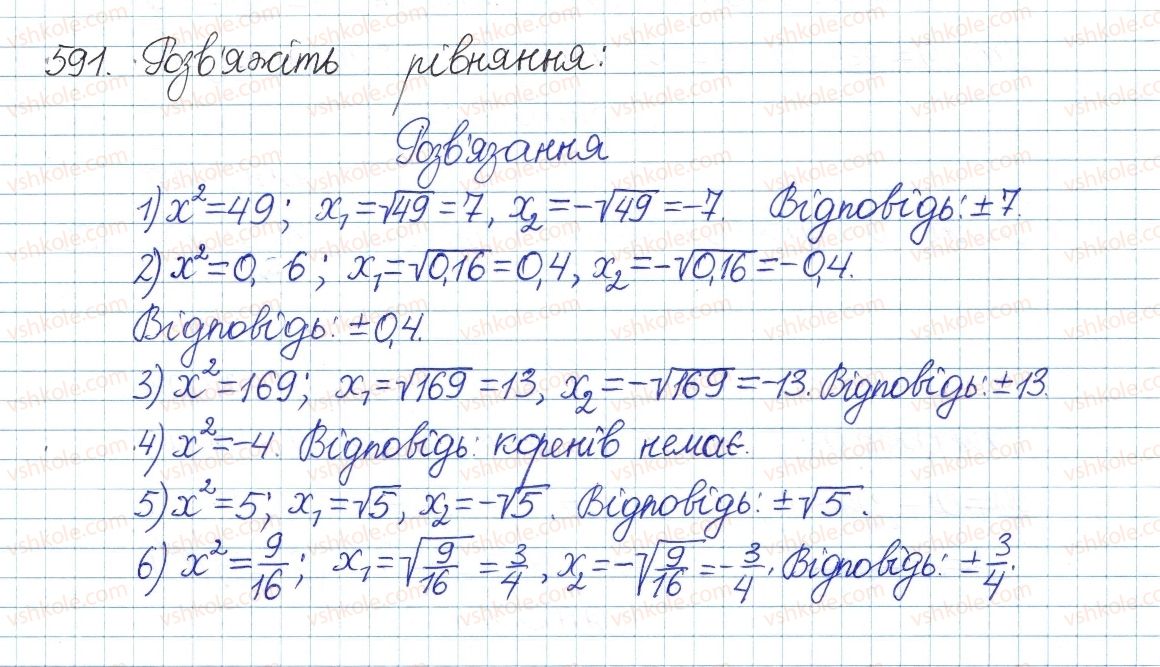 591. Розв'яжіть рівняння:
Розв'язання
1) x²=49; x₁=√49=7, x₂=-√49=-7. Відповідь: ±7.
2) x²=0, 6; x₁=√0,16=0,4, x₂=-√0,16=-0,4.
Відповідь: ±0,4.
3) x²=169; x₁=√169=13, x₂=-√169=-13. Відповідь: ±13.
4) x²=-4. Відповідь: коренів немає.
5) x²=5; x₁=√5, x₂=-√5. Відповідь: ±√5.
6) x²=9/16; x₁=√9/16=3/4, x₂=-√9/16=-3/4. Відповідь: ±3/4.